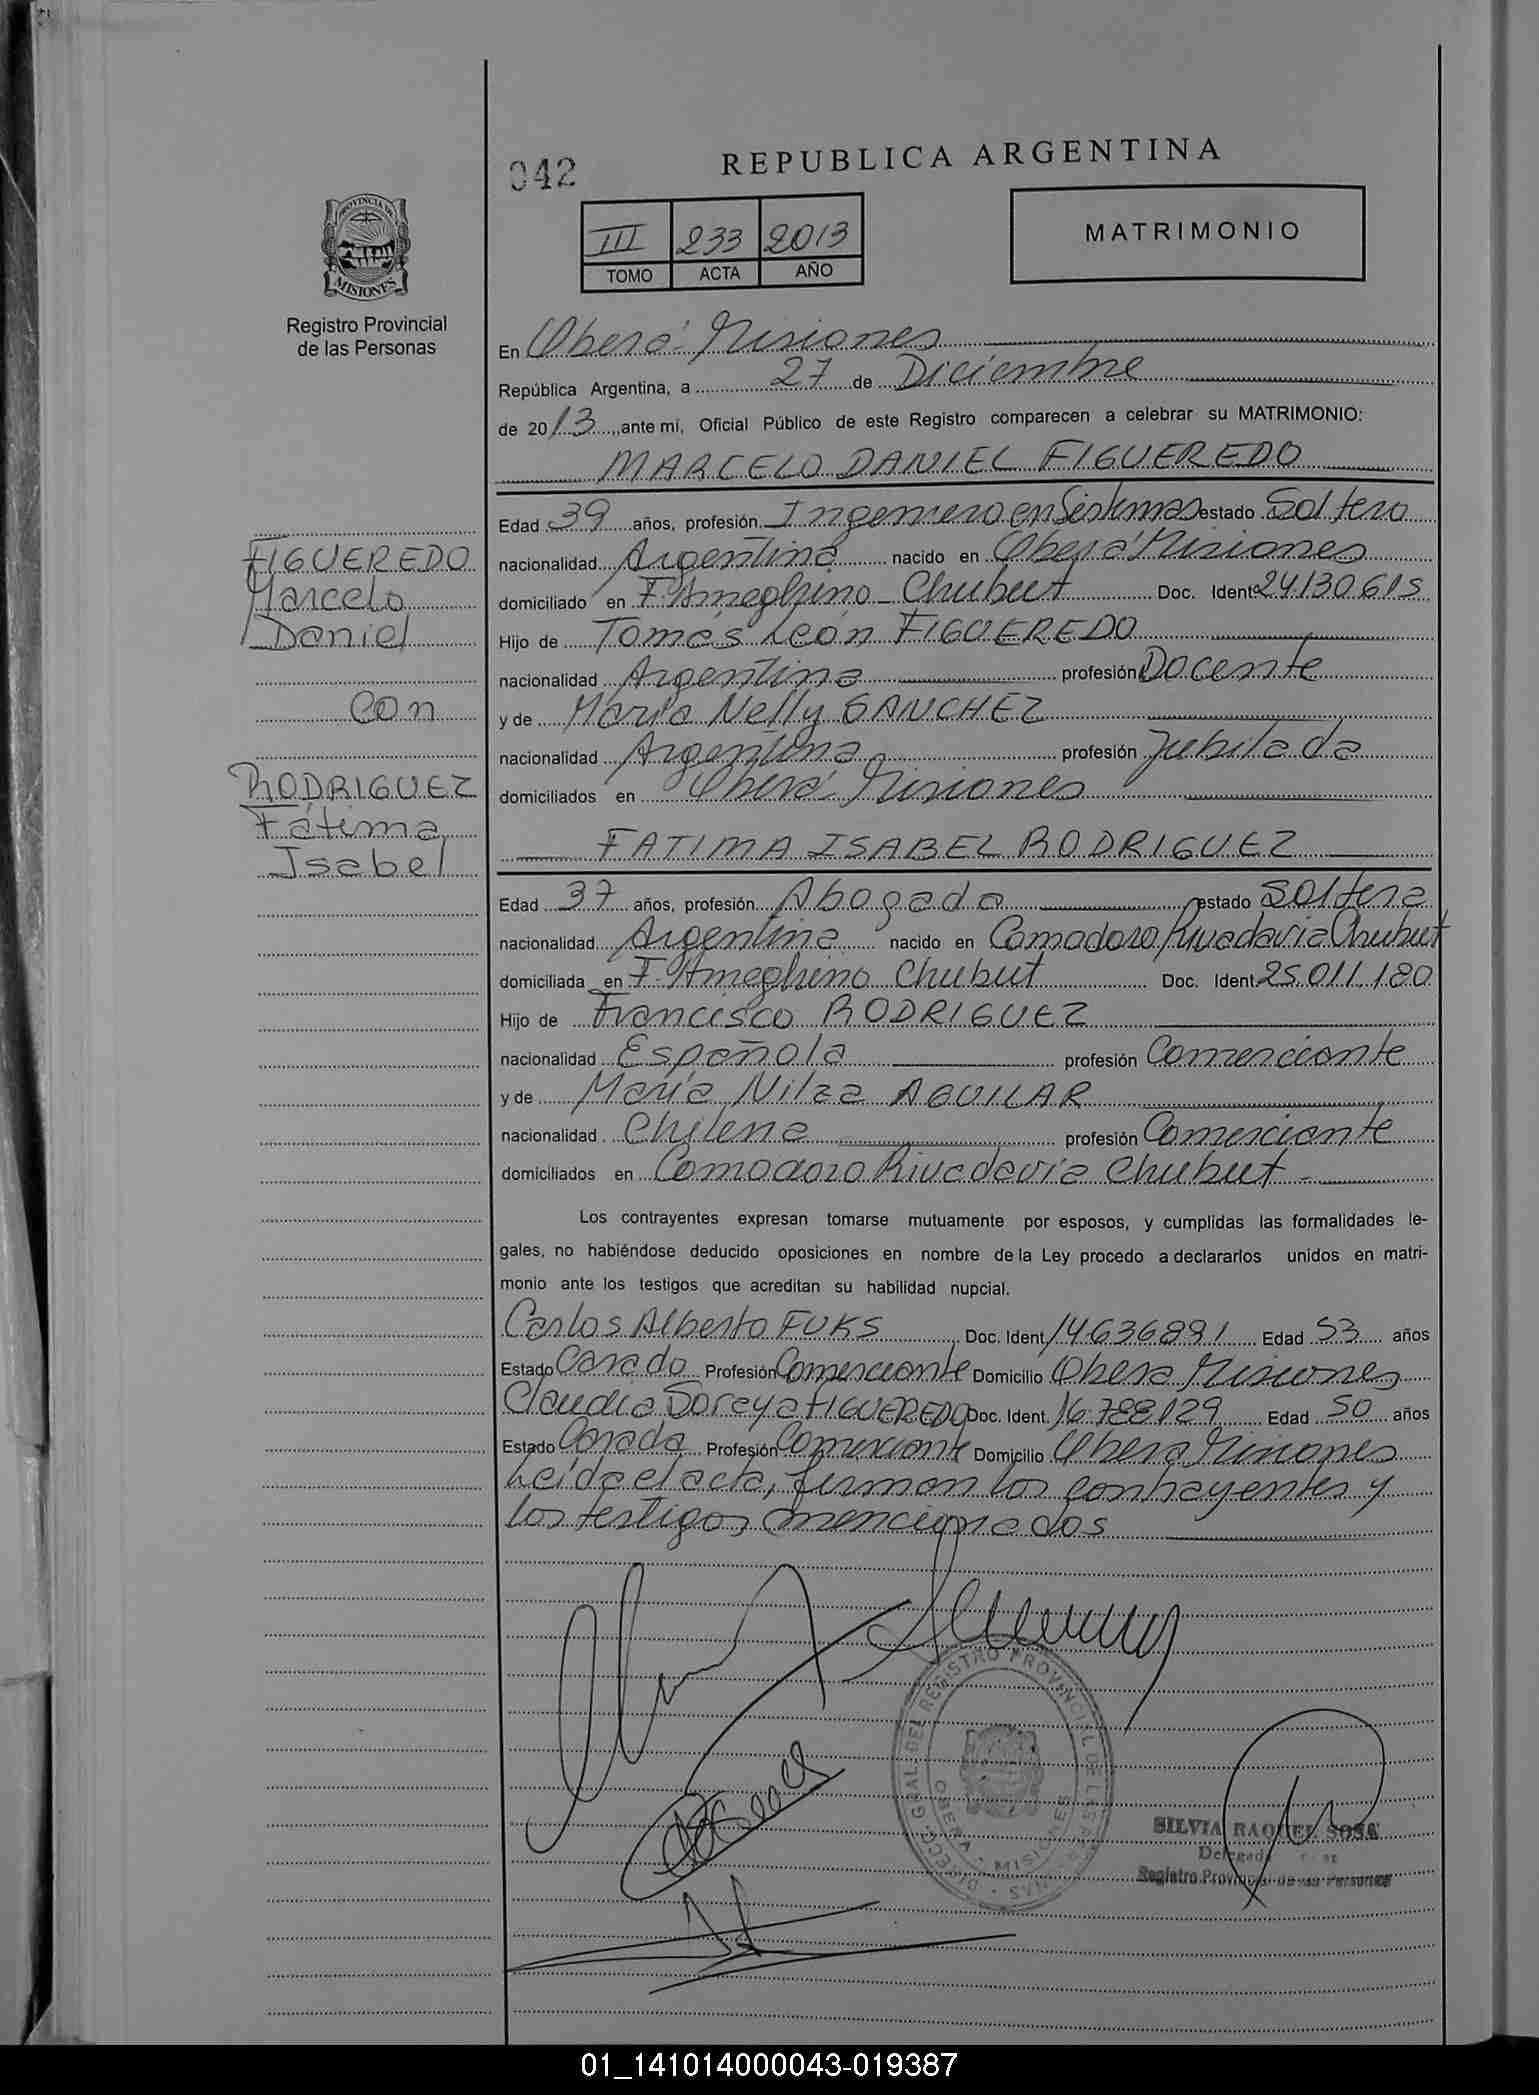 042
REPUBLICA ARGENTINA
III 233 2013
TOMO ACTA AÑO
MATRIMONIO
PROVINCIA DE
MISIONES
Registro Provincial
de las Personas
En Oberá Misiones
República Argentina, a 27 de Diciembre
de 2013, ante mi, Oficial Público de este Registro comparecen a celebrar su MATRIMONIO:
MARCELO DANIEL FIGUEREDO
Edad 39 años, profesión Ingeniero en Sistemas estado Soltero
nacionalidad Argentina nacido en Oberá Misiones
domiciliado en F. Ameghino - Chubut Doc. Ident. 24130615
Hijo de Tomás León FIGUEREDO
nacionalidad Argentina profesión Docente
y de María Nelly SANCHEZ
nacionalidad Argentina profesión Jubilada
domiciliados en Oberá Misiones
FIGUEREDO
Marcelo
Daniel
con
RODRIGUEZ
Fátima
Isabel
FATIMA ISABEL RODRIGUEZ
Edad 37 años, profesión Abogada estado Soltera
nacionalidad Argentina nacido en Comodoro Rivadavia Chubut
domiciliada en F. Ameghino Chubut Doc. Ident. 25.011.180
Hijo de Francisco RODRIGUEZ
nacionalidad Española profesión Comerciante
y de María Nilza AGUILAR
nacionalidad Chilena profesión Comerciante
domiciliados en Comodoro Rivadavia Chubut -
Los contrayentes expresan tomarse mutuamente por esposos, y cumplidas las formalidades le-
gales, no habiéndose deducido oposiciones en nombre de la Ley procedo a declararlos unidos en matri-
monio ante los testigos que acreditan su habilidad nupcial.
Carlos Alberto FUKS Doc. Ident. 14636891 Edad 53 años
Estado Casado Profesión Comerciante Domicilio Obera Misiones
Claudia Soreya FIGUEREDO Doc. Ident. 16.788.129 Edad 50 años
Estado Casada Profesión Comerciante Domicilio Obera Misiones
Leída el acta, firman los contrayentes y
los testigos mencionados
DIRECC. GRAL. DEL REGISTRO PROVINCIAL DE LAS PERSONAS
OBERA - MISIONES
SILVIA RAQUEL SOSA
Delegada
Registro Provincial de las Personas
01_141014000043-019387